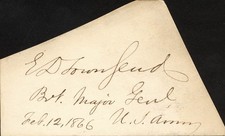 E D Townsend
Bvt. Major Genl
Feb. 12, 1866 U. S. Army